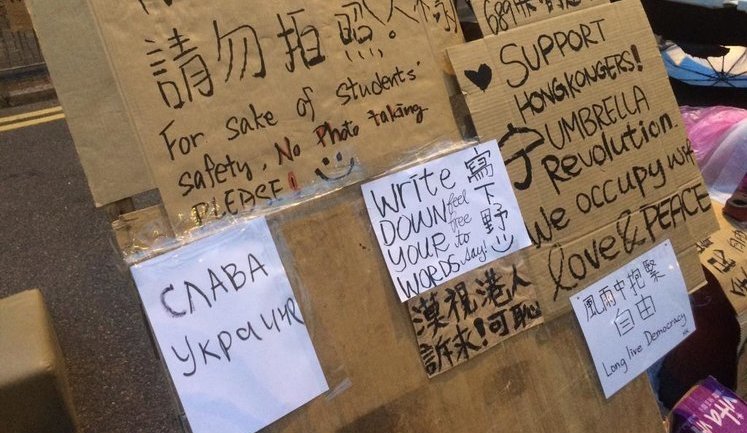 請勿拍照
For sake of students'
safety, No Photo taking
PLEASE!
SUPPORT
HONGKONGERS!
UMBRELLA
Revolution.
We occupy with
love & PEACE
write
DOWN
YOUR
WORDS
feel
free
to
say!
寫下野
漠視港人
訴求!可恥
СЛАВА
УКРАИНЕ
風雨中抱緊
自由
Long live Democracy
vita